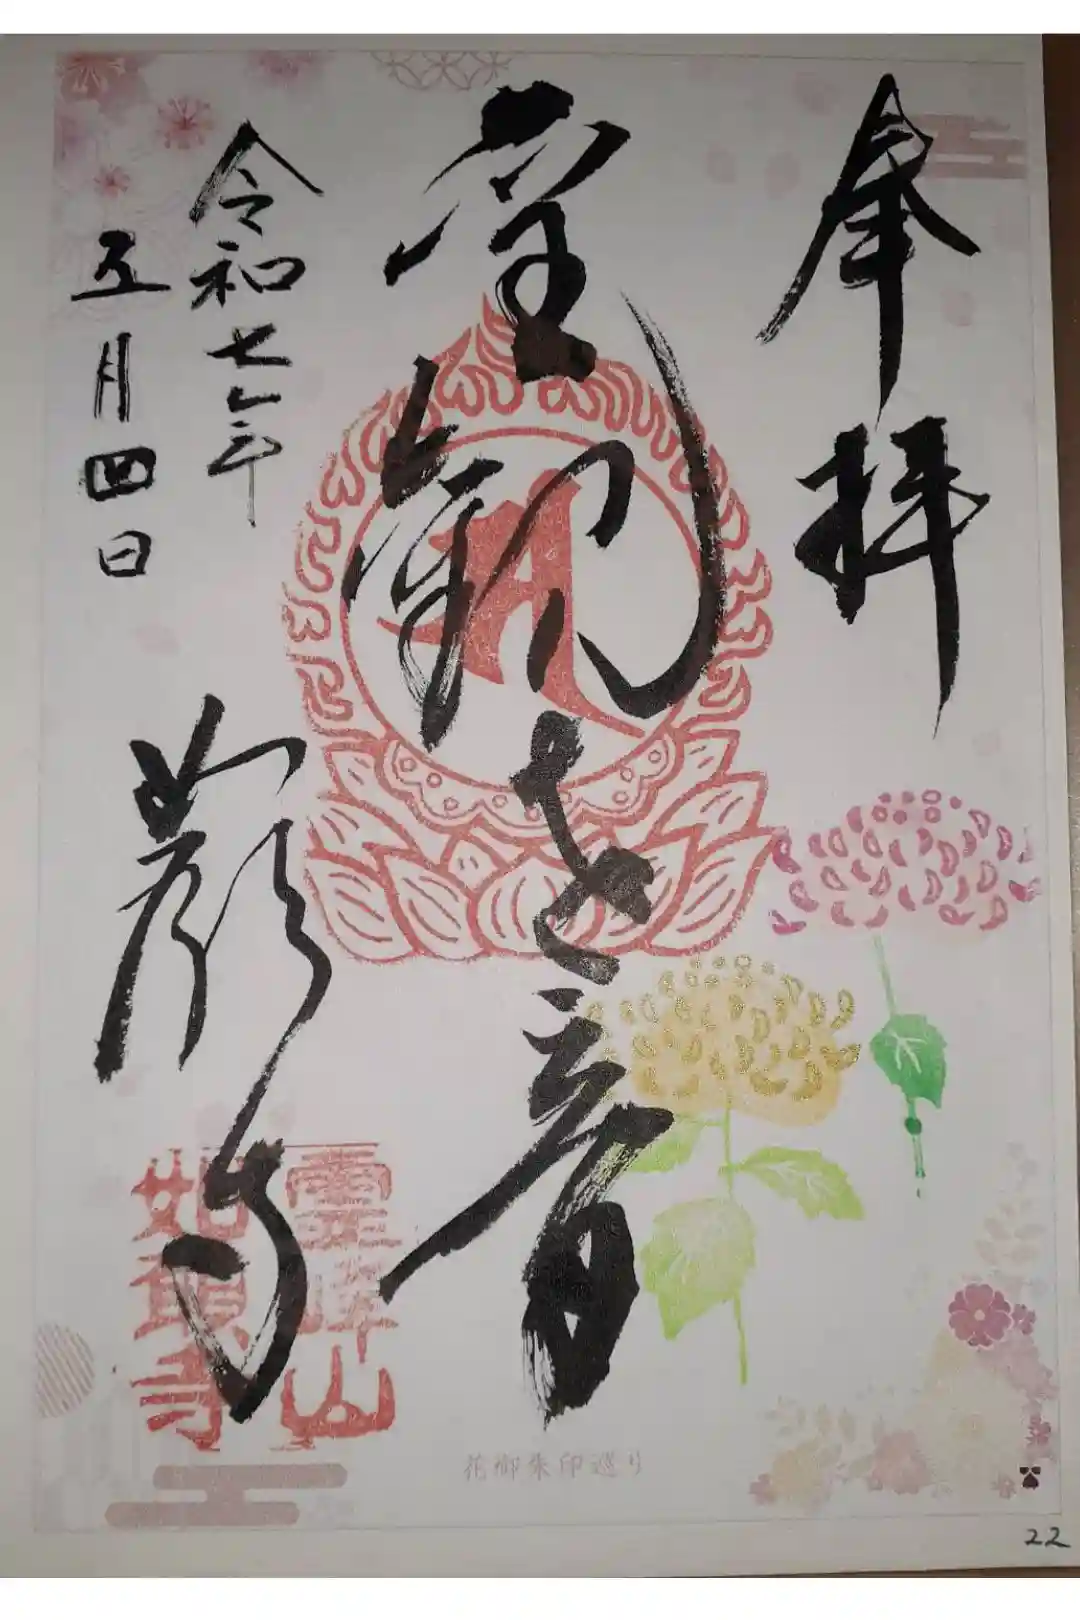 奉拝
聖観世音
令和七年
五月四日
如願寺
如願寺
花御朱印巡り
22